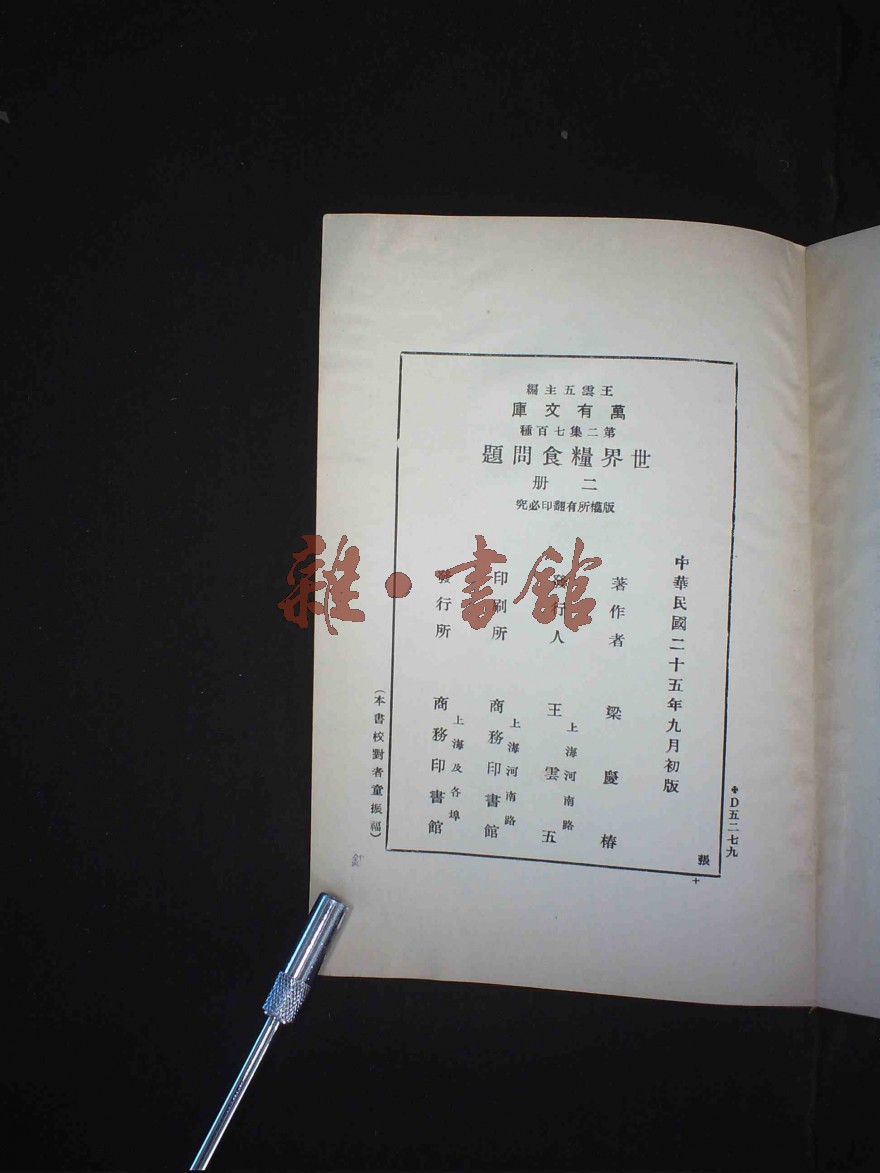 王雲五主編
萬有文庫
第二集七百種
世界糧食問題
二册
版權所有翻印必究
中華民國二十五年九月初版
著作者 梁慶椿
發行人 王雲五
上海河南路
印刷所 商務印書館
上海河南路
發行所 商務印書館
上海及各埠
（本書校對者童振福）
D五二七九
張
雜·書館